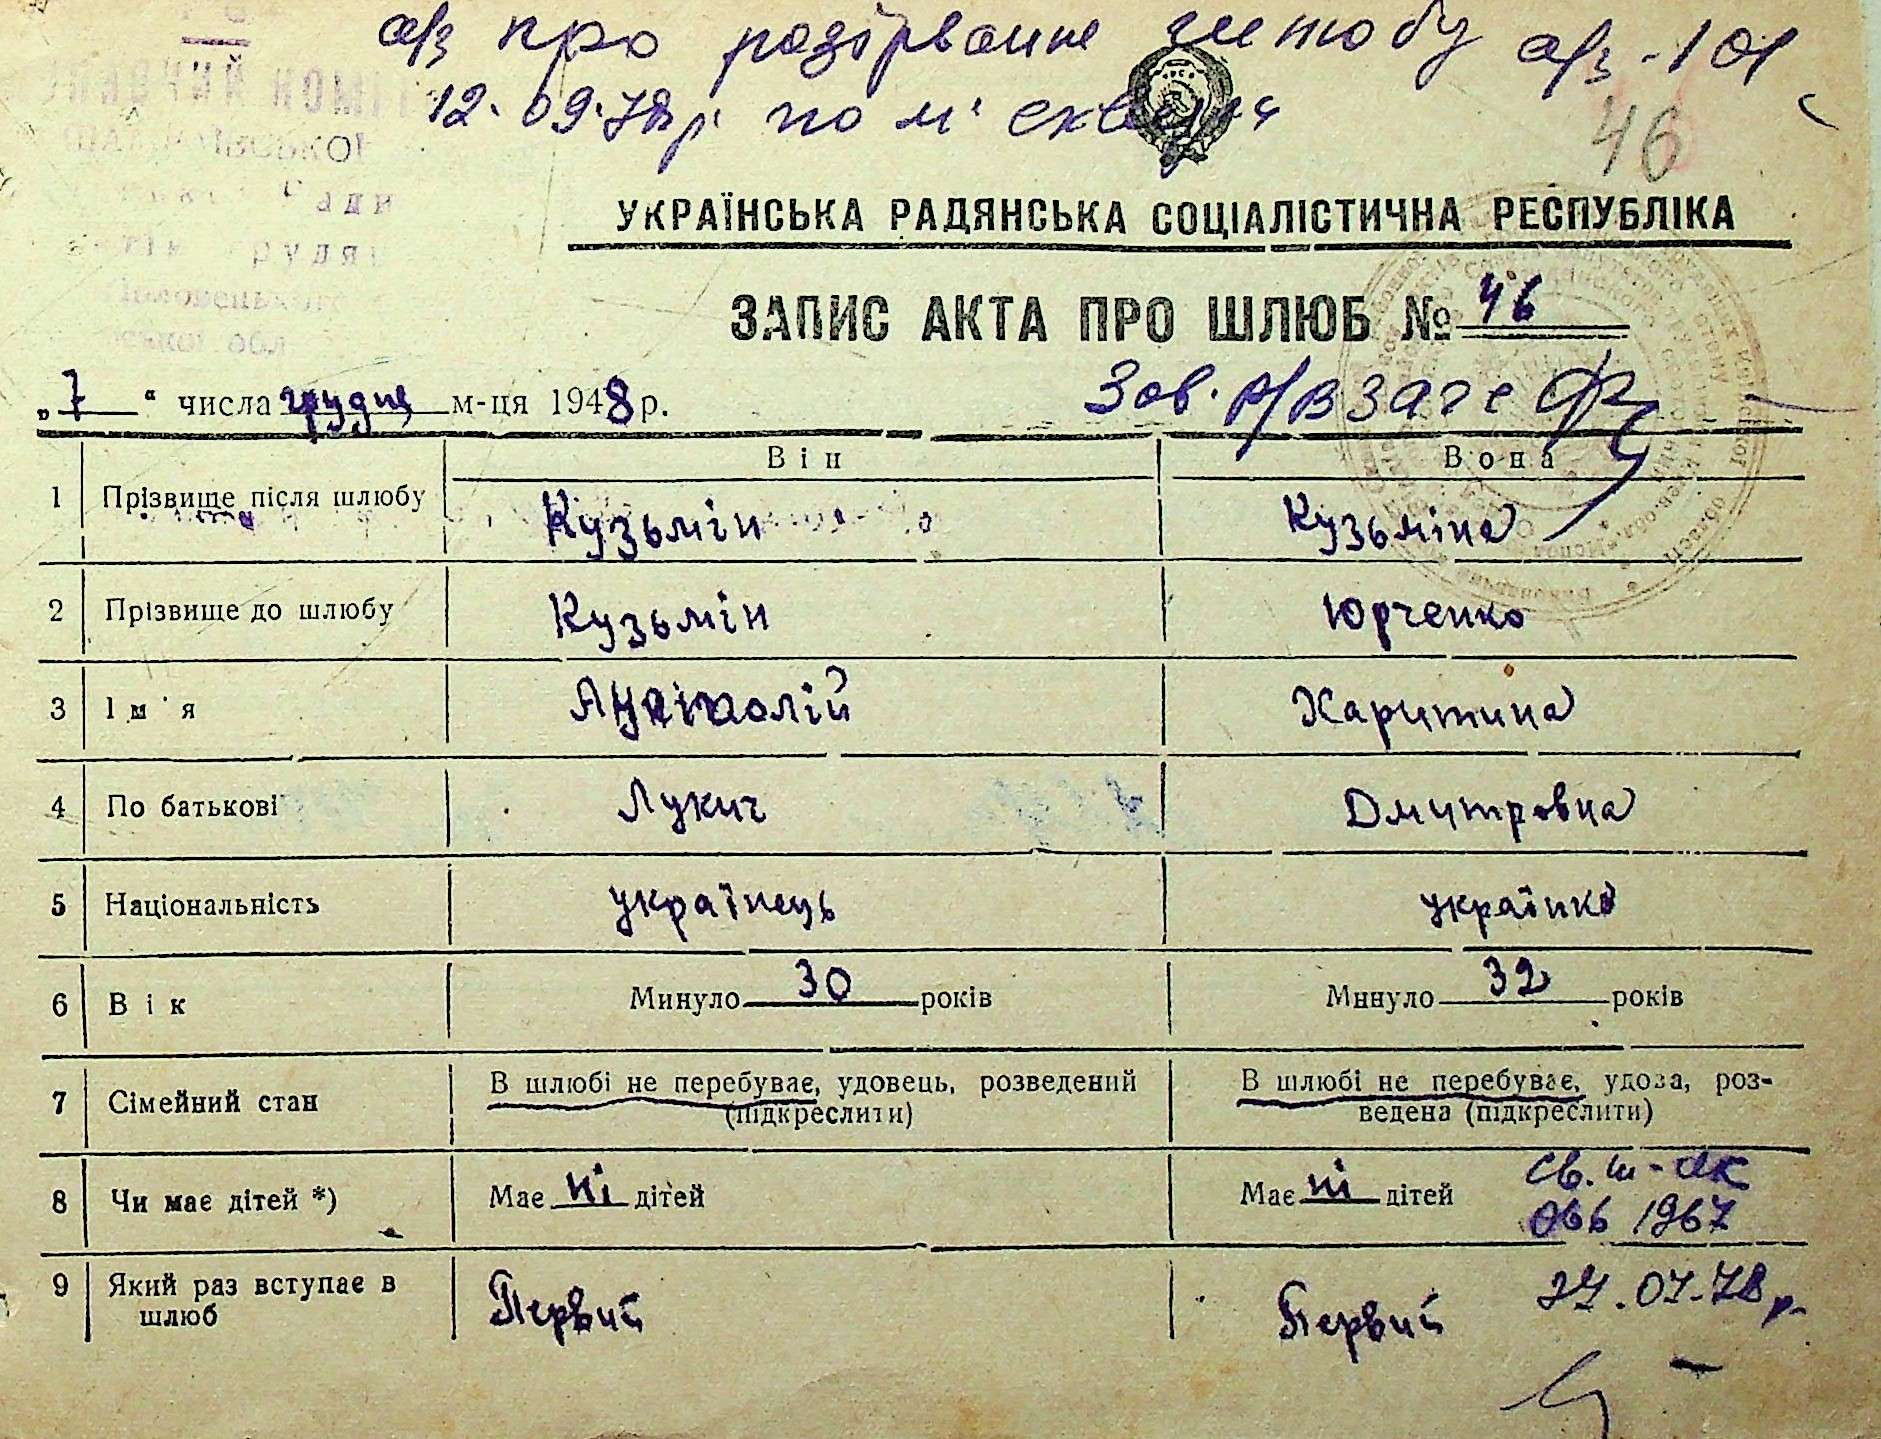 а/з про розірвання шлюбу а/з-101
12.09.78р. по м.
46
УКРАЇНСЬКА РАДЯНСЬКА СОЦІАЛІСТИЧНА РЕСПУБЛІКА
ЗАПИС АКТА ПРО ШЛЮБ № 46
„7“ числа грудня м-ця 1948 р.
Зав. р/в загс
Він Вона
1 Прізвище після шлюбу Кузьмін Кузьміна
2 Прізвище до шлюбу Кузьмін Юрченко
3 Ім'я Харитина
4 По батькові Лукич Дмитровна
5 Національність українець українка
6 Вік Минуло 30 років Минуло 32 років
7 Сімейний стан В шлюбі не перебуває, удовець, розведений В шлюбі не перебуває, удова, роз-
(підкреслити) ведена (підкреслити)
8 Чи має дітей *) Має ні дітей Має ні дітей
св. ш-ЯК
066 1967
9 Який раз вступає в Первий Первий
шлюб
27.07.78р.